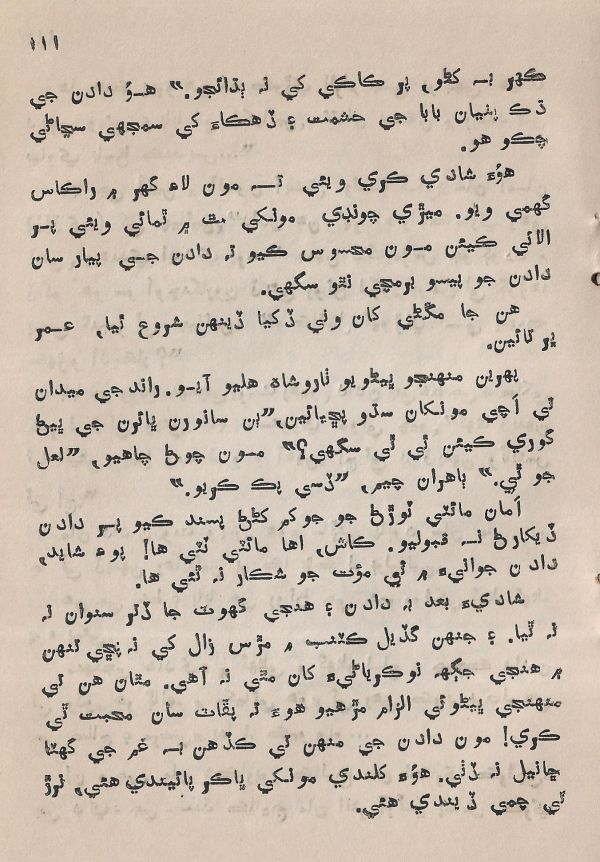 ١١١
ڪهڙ بہ کڻو, پر ڪاڪي کي نہ ٻڌائجو.“ هـوُ دادن جي
ڌڪ پٺيان بابا جي حشمت ۽ ڏهڪاءَ کي سمجهي سڃاڻي
چڪو هو.
هوُءَ شادي ڪري ويئي تـہ مون لاءِ گهر ۾ راڪاس
گهمي ويو. ميڙي چونڊي مونکي ٿڌ ۾ ٿمائي ويئي پـر
الائي ڪيئن مـون محسوس ڪيو تہ دادن جـي پيار سان
دادن جو پيسو برمچي نٿو سگهي.
هن جا مڱڻي کان وٺي ڏکيا ڏينهن شروع ٿيا, عـمر
ڀر تائين.
ٻهرين منهنجو ڀيڻويو ٺاروشاه هليو آيـو. راند جي ميدان
تي اَچي مونکان سڌو پڇيائين,”ٻن سانورن ڀائرن جي ڀيڻ
گوري ڪيئن ٿي ٿي سگهي؟“ مـون چوڻ چاهيو, ”لعل
جو ٿي.“ ٻاهران چيم, ”ڏسي پڪ ڪريو.“
اَمان مائٽي ٽوڙڻ جو جوکم کڻڻ پسند ڪيو پـر دادن
ڏيکارڻ نـہ قبوليو. ڪاش, اها مائٽي ٽٽي ها! پوءِ شايد,
دادن جوانيءَ ۾ ئي مؤت جو شڪار نہ ٿئي ها.
شاديءَ بعد بہ دادن ۽ هنجي گهوٽ جا ڏٺر سنوان نہ
نہ ٿيا. ۽ جنهن گڏيل ڪٽنب ۾ مڙس زال کي نہ پڇي تنهن
۾ هنجي جڳهہ نوڪرياڻيءَ کان مٿي نہ آهي. مٿان هن تي
منهنجي ڀيڻوئي الزام مڙهيو هوءَ نہ پڦاٽ سان محبت ٿي
ڪري! مون دادن جي منهن تي ڪڏهن بـہ غم جي گهٽا
ڇانيل نہ ڏٺي. هوُءَ کلندي مونکي ڀاڪر پائيندي هئي, نرڙ
تي چمي ڏيندي هئي.